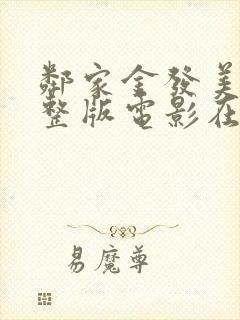 鄰家金發美
整版電影在
易魔尊